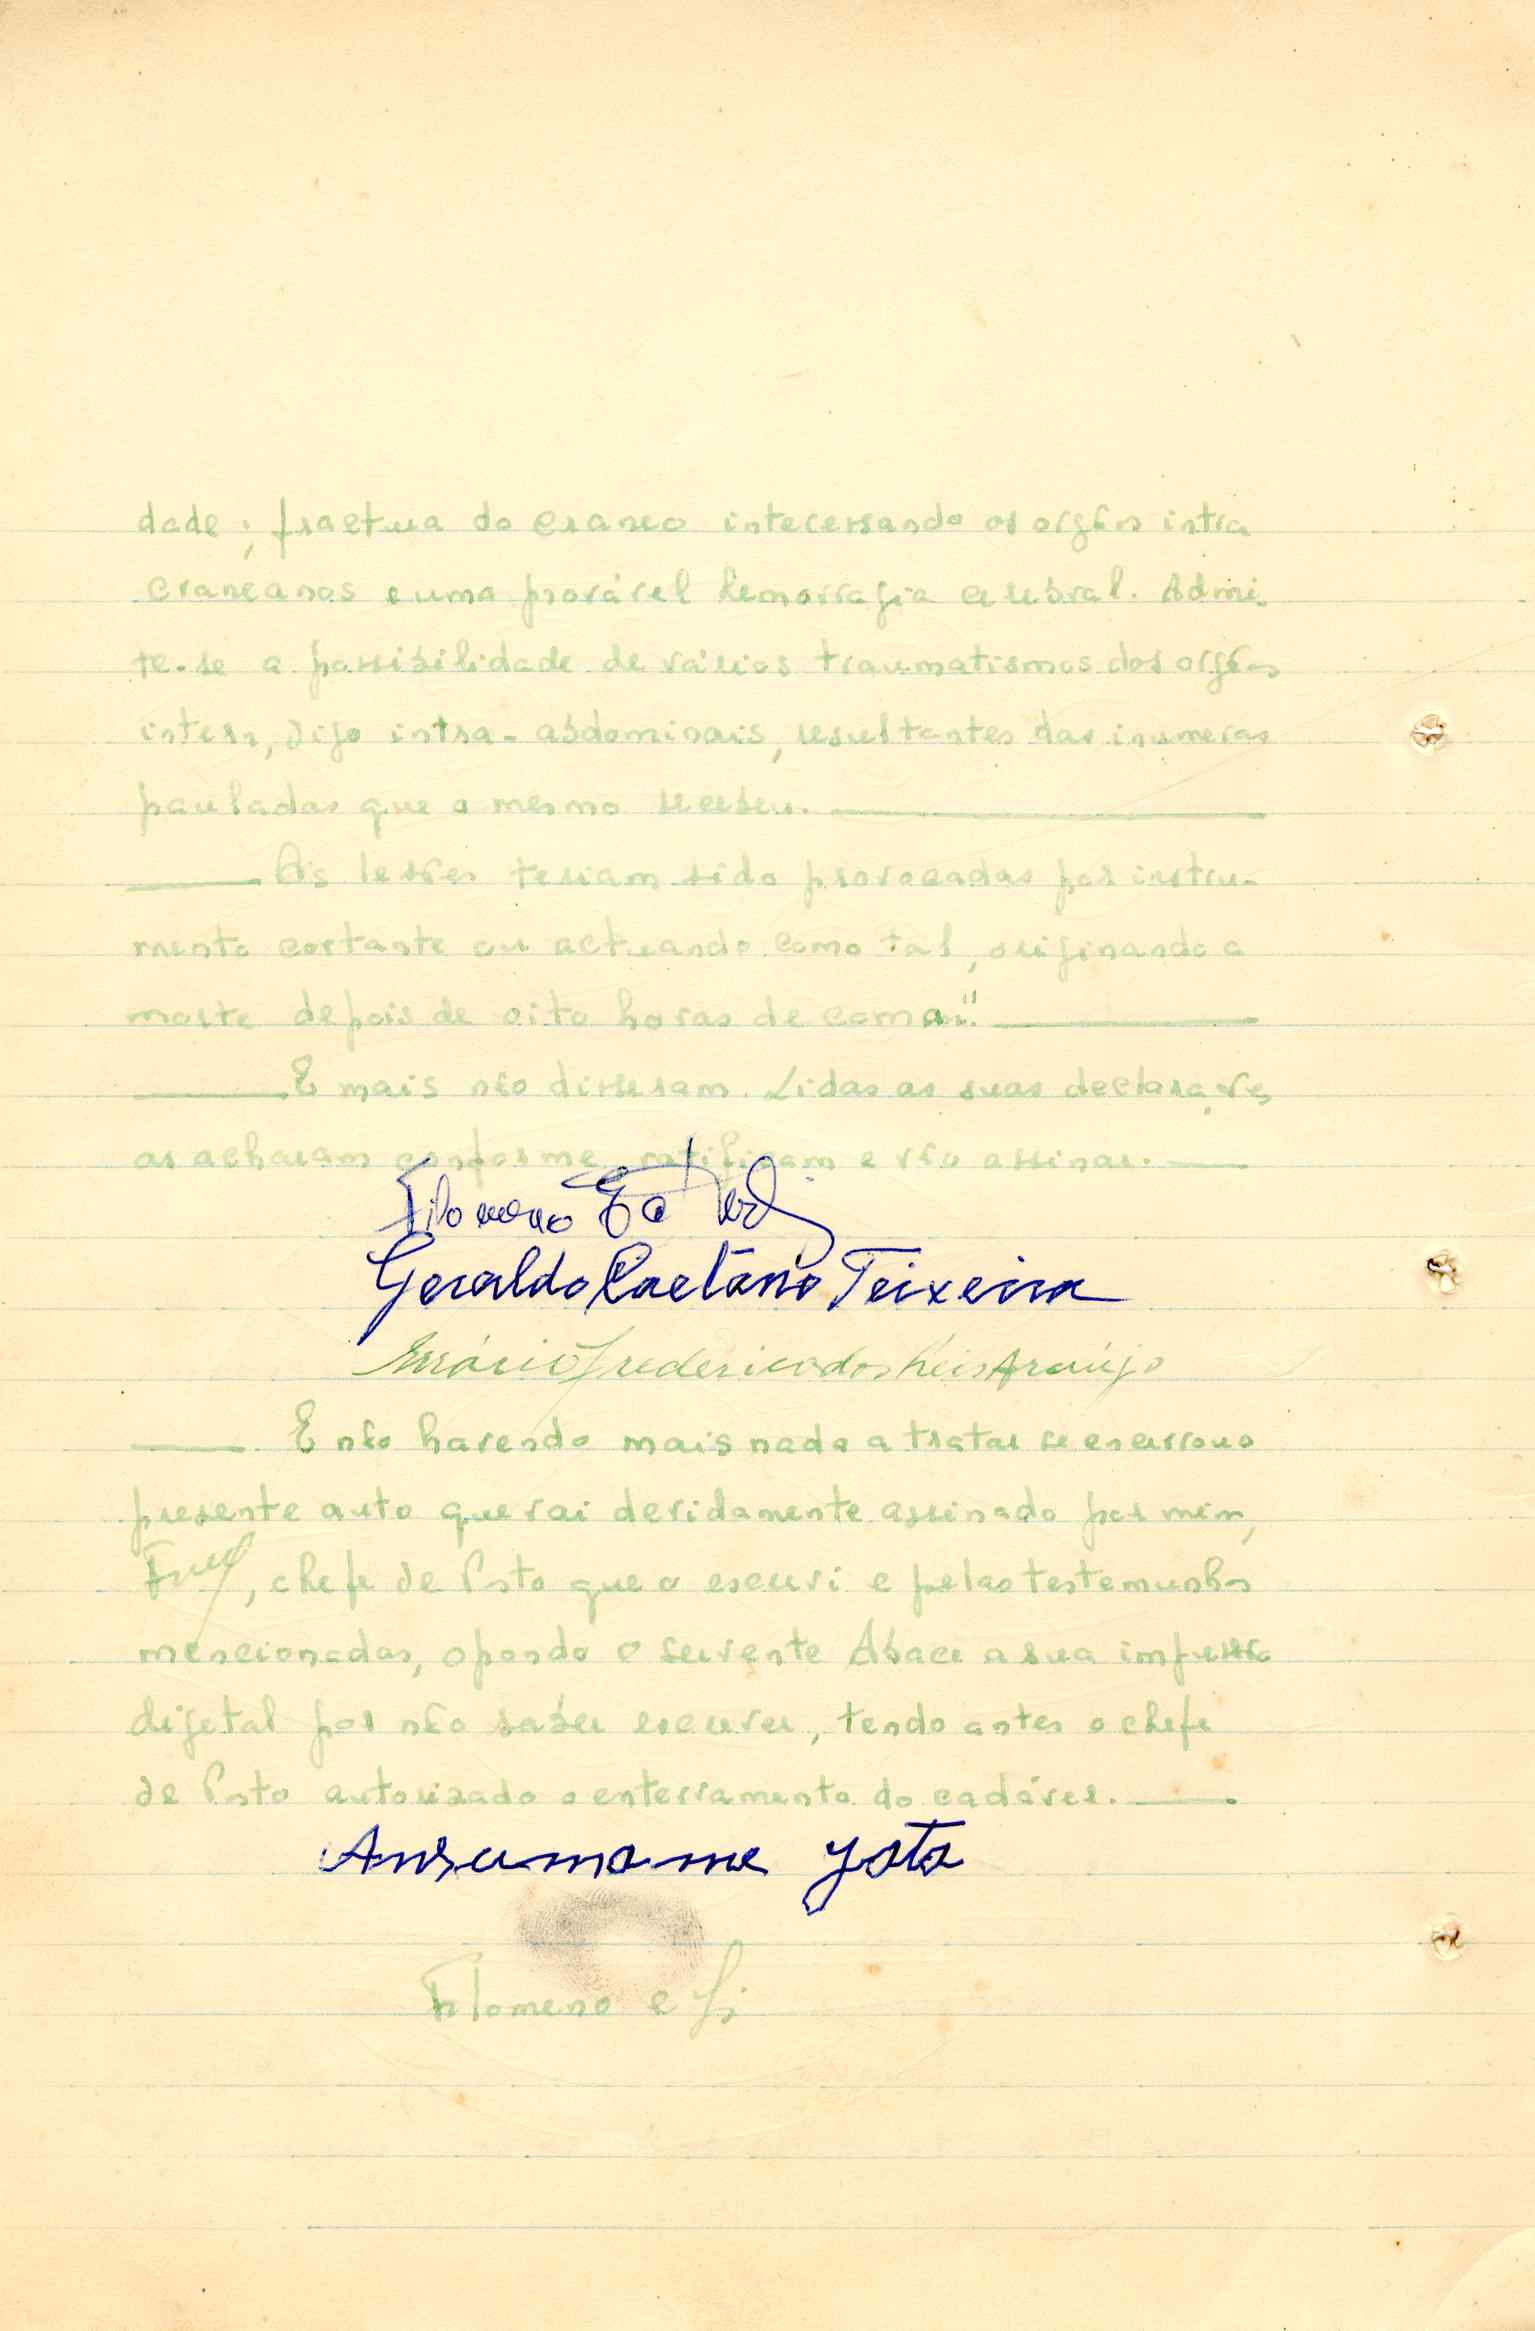 dade; fractura do craneo interessando os orgãos intra
craneanos e uma provável hemorragia cerebral. Admi-
te-se a possibilidade de vários traumatismos dos orgãos
intern, digo intra-abdominais, resultantes das inumeras
pauladas que o mesmo recebeu.
As lesões teriam sido provocadas por instru-
mento cortante ou actuando como tal, originando a
morte depois de oito horas de coma".
E mais não disseram. Lidas as suas declarações,
as acharam conforme, ratificam e vão assinar.
Filomeno
Geraldo Caetano Teixeira
Frederico dos Reis Araújo
E não havendo mais nada a tratar se encerrou o
presente auto que vai devidamente assinado por mim,
, chefe de Posto que o escrevi e pelas testemunhas
mencionadas, opondo o servente Abacer a sua impressão
digetal por não saber escrever, tendo antes o chefe
de Posto autorizado o enterramento do cadáver.
Ansumane
Filomeno e